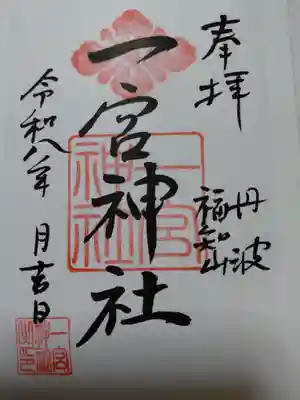 奉拝
丹波
福知山
一宮神社
一宮神社
令和八年 月吉日